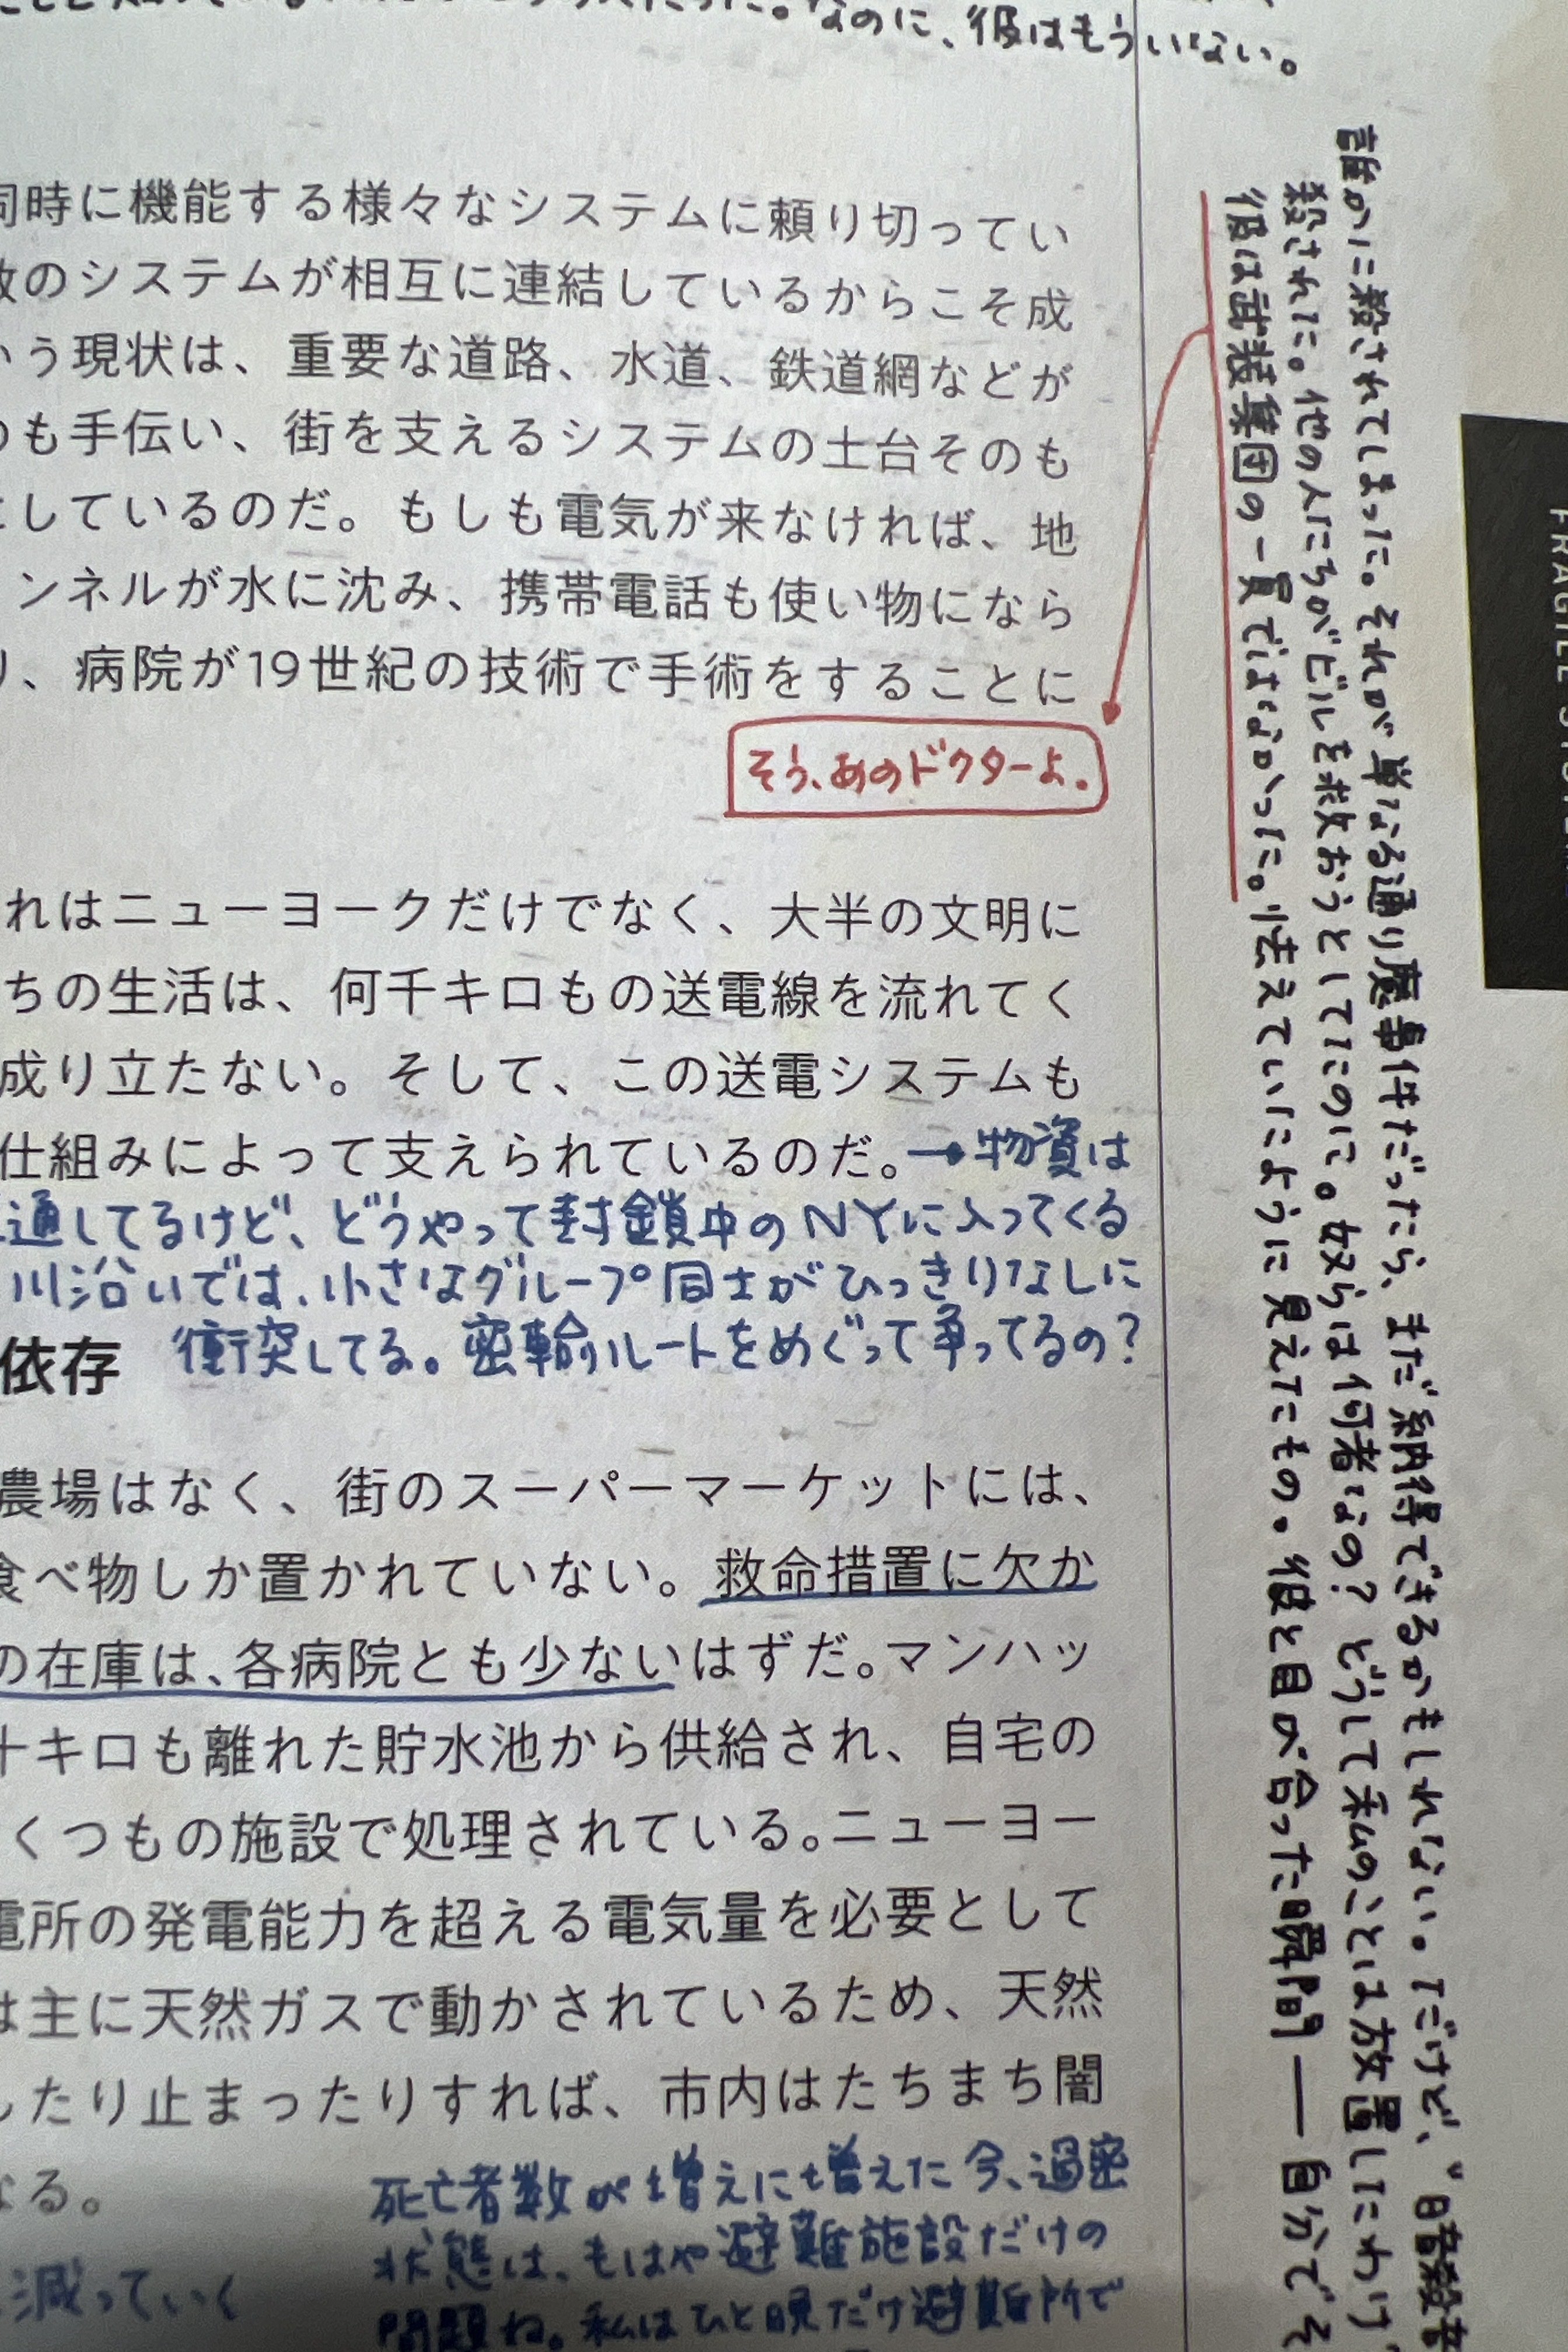 なのに、彼はもういない。
同時に機能する様々なシステムに頼り切ってい
数のシステムが相互に連結しているからこそ成
いう現状は、重要な道路、水道、鉄道網などが
のも手伝い、街を支えるシステムの土台そのも
にしているのだ。もしも電気が来なければ、地
ンネルが水に沈み、携帯電話も使い物になら
り、病院が19世紀の技術で手術をすることに
そう、あのドクターよ。
れはニューヨークだけでなく、大半の文明に
ちの生活は、何千キロもの送電線を流れてく
成り立たない。そして、この送電システムも
仕組みによって支えられているのだ。→物資は
通してるけど、どうやって封鎖中のNYに入ってくる
川沿いでは、小さなグループ同士がひっきりなしに
衝突してる。密輸ルートをめぐって争ってるの?
依存
農場はなく、街のスーパーマーケットには、
食べ物しか置かれていない。救命措置に欠か
の在庫は、各病院とも少ないはずだ。マンハッ
十キロも離れた貯水池から供給され、自宅の
くつもの施設で処理されている。ニューヨー
電所の発電能力を超える電気量を必要として
は主に天然ガスで動かされているため、天然
したり止まったりすれば、市内はたちまち闇
なる。
死亡者数が増えに増えた今、過密
状態は、もはや避難施設だけの
問題ね。私はひと晩だけ避難所で
減っていく
誰かに殺されてしまった。それが単なる通り魔事件だったら、まだ納得できるかもしれない。だけど、"暗殺者
殺された。他の人たちがビルを救おうとしてたのに。奴らは何者なの? どうして私のことは放置したわけ
彼は武装集団の一員ではなかった。怯えていたように見えたもの。彼と目が合った瞬間——自分でそ
FRAGILE